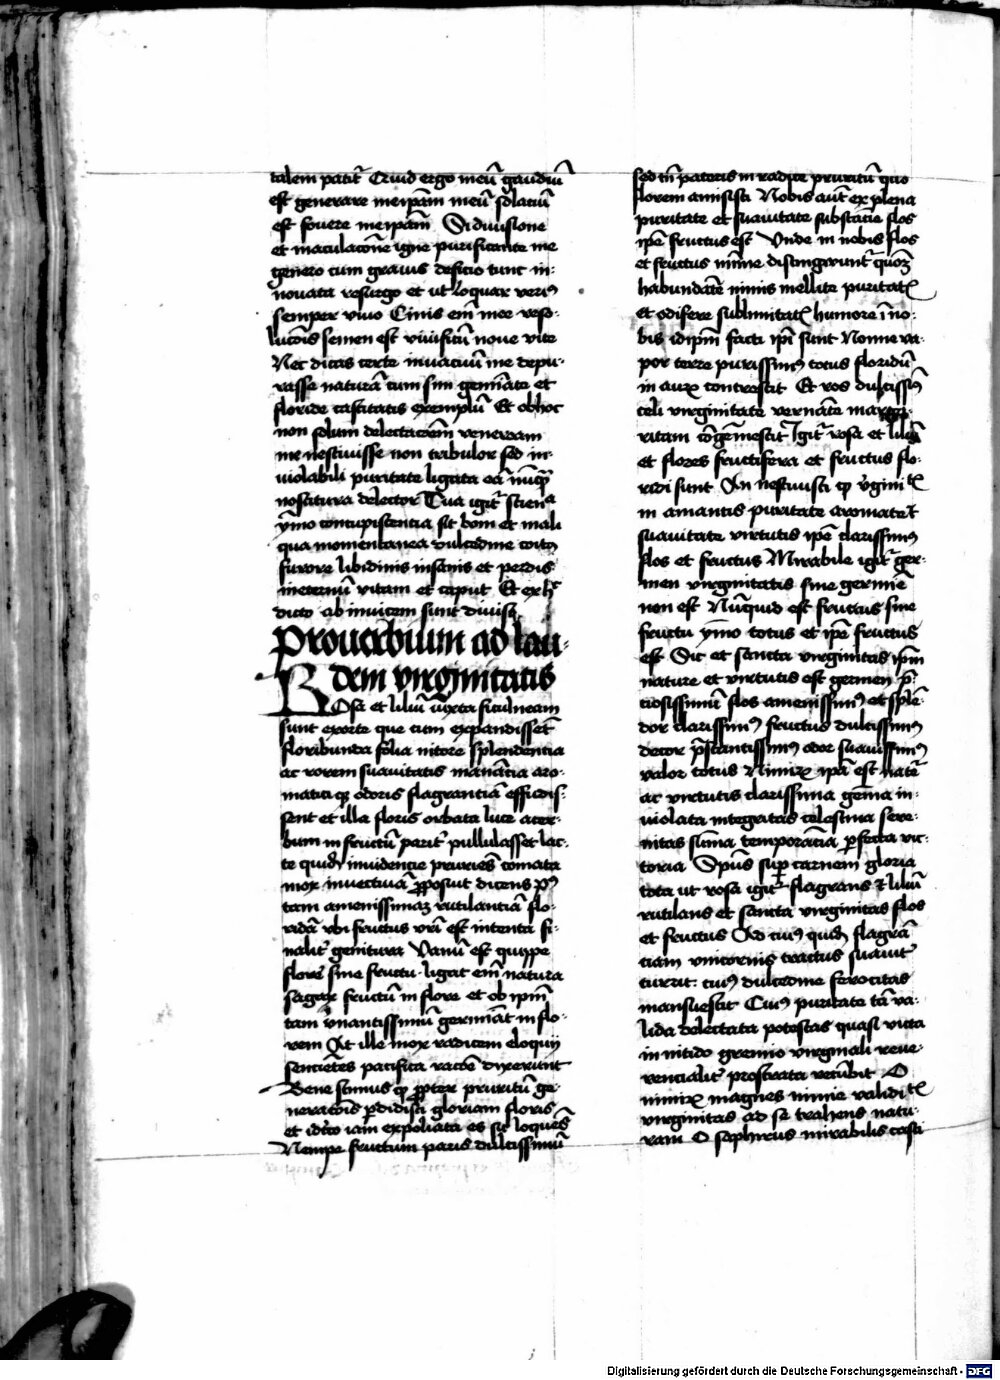 talem patit᷑ Quid ergo meū gaudiū
est generare meip̄am meū solatiū
est fouere meip̄am Si diuisione
et maculacōne igne purificante me
genero cum grauis deficio tunc in-
nouata resurgo et ut loquar verꝰ
semper viuo Cinis em̄ mee reso-
lucōis semen est viuificū noue vite
Nec dicas certe inuacuū me depu-
rasse naturā cum sim gem̄ate et
floride castitatis exemplū Et obhoc
non solum delectacōem veneream
me nesciuisse non tribulor sed in-
uiolabili puritate ligata eā nūq̄
noscitura delector Tua igit᷑ scien
ȳmo concupiscentia sit boni et mali
qua momentanea dulcedine coitꝰ
furore libidinis insanis et perdis
ineternū vitam et caput Et ex h
dicto ab inuicem sunt diuisa
Prouerbium ad lau-
dem virginitatis
ROsa et liliū iuxta ficulneam
sunt exorte que cum expandisset
floribunda folia nitore splendentia
ac rorem suauitatis manātia aro-
matici qꝫ odoris flagrantiā effudis-
sent et illa floris orbata luce acer-
bum in fructū parit᷑ pullulasset lac-
te quidē inuidencie pruries comata
mox inuectiuā ꝓposuit dicens
tam amenissimaꝫ rutilantiā flo-
ridā vbi fructus vr̄i est intenta fi-
nalit᷑ genitura Vanū est quippe
flore sine fructu ligat em̄ natura
sagax fructū in flore et ob ip̄m
tam v̄nantissimū germīat in flo-
rem At ille mox radicem eloquij
sencietes pacifica racōe dixerunt
Bene scimus ꝙ ꝓpter pruritū ge-
neracōis ꝑdidisti gloriam floris
et idcō iam expoliata es sic loquēs
Nempe fructum paris dulcissimū
sed tn̄ pateris in radice pruritū quo
florem amisisti Nobis aut᷑ ex plena
puritate et suauitate substātie flos
ip̄e fructus est Vnde in nobis flos
et fructus mīme distingwunt᷑ quōꝫ
habundāte nimis mellite puritat
et odifere sublimitat humore ī no-
bis idip̄m facti ip̄i sunt Nonne va-
por terre purissimꝰ totus floridū
in aurꝫ concrescit Et ros dulcissimꝰ
celi virginitate vernāte marga-
ritam cōgēmescit Igit᷑ rosa et liliū
et flores fructifera et fructus flo-
ridi sunt An nesciuisti ꝙ v̓gini
in amantis puritate aromate
suauitate virtutis ip̄e clarissimꝰ
flos et fructus Mirabile igit᷑ ger-
men virginitatis sine germie
non est Nūquid est fructus sine
fructu ȳmo totus et ip̄e fructus
est Sic et sancta virginitas ip̄m
nature et virtutis est germen p̄-
ciosissimū flos amenissimꝰ et splē-
dor clarissimꝰ fructus dulcissimꝰ
decor p̄stantissimꝰ odor suauissimꝰ
valor totus Nimirꝫ ip̄a est nate
ac virtutis clarissima gem̄a in-
uiolata integritas celestina sere-
nitas sūma temporācia ꝑfecta vic-
toria Sp̄us suꝑ carnem gloria
tota ut rosa igit᷑ flagrans et liliū
rutilans et sancta virginitas flos
et fructus Ad cuiꝰ quidē flagrā-
ciam vnicornis tractus suauit᷑
currit cuiꝰ dulcedine ferocitas
mansuescit Cuiꝰ puritate tā va-
lida delectata potestas quasi victa
in nitido gremio virginali reue-
rencialit᷑ prostrata recūbit O
nimirꝫ magnes nimie validi
virginitas ad se trahens natu-
ram O saphirus mirabilis casti
Digitalisierung gefördert durch die Deutsche Forschungsgemeinschaft - DFG